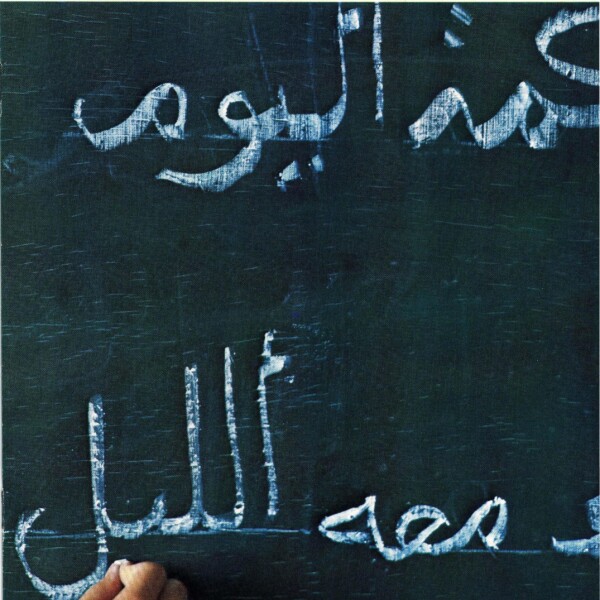 اليوم
معه الليل